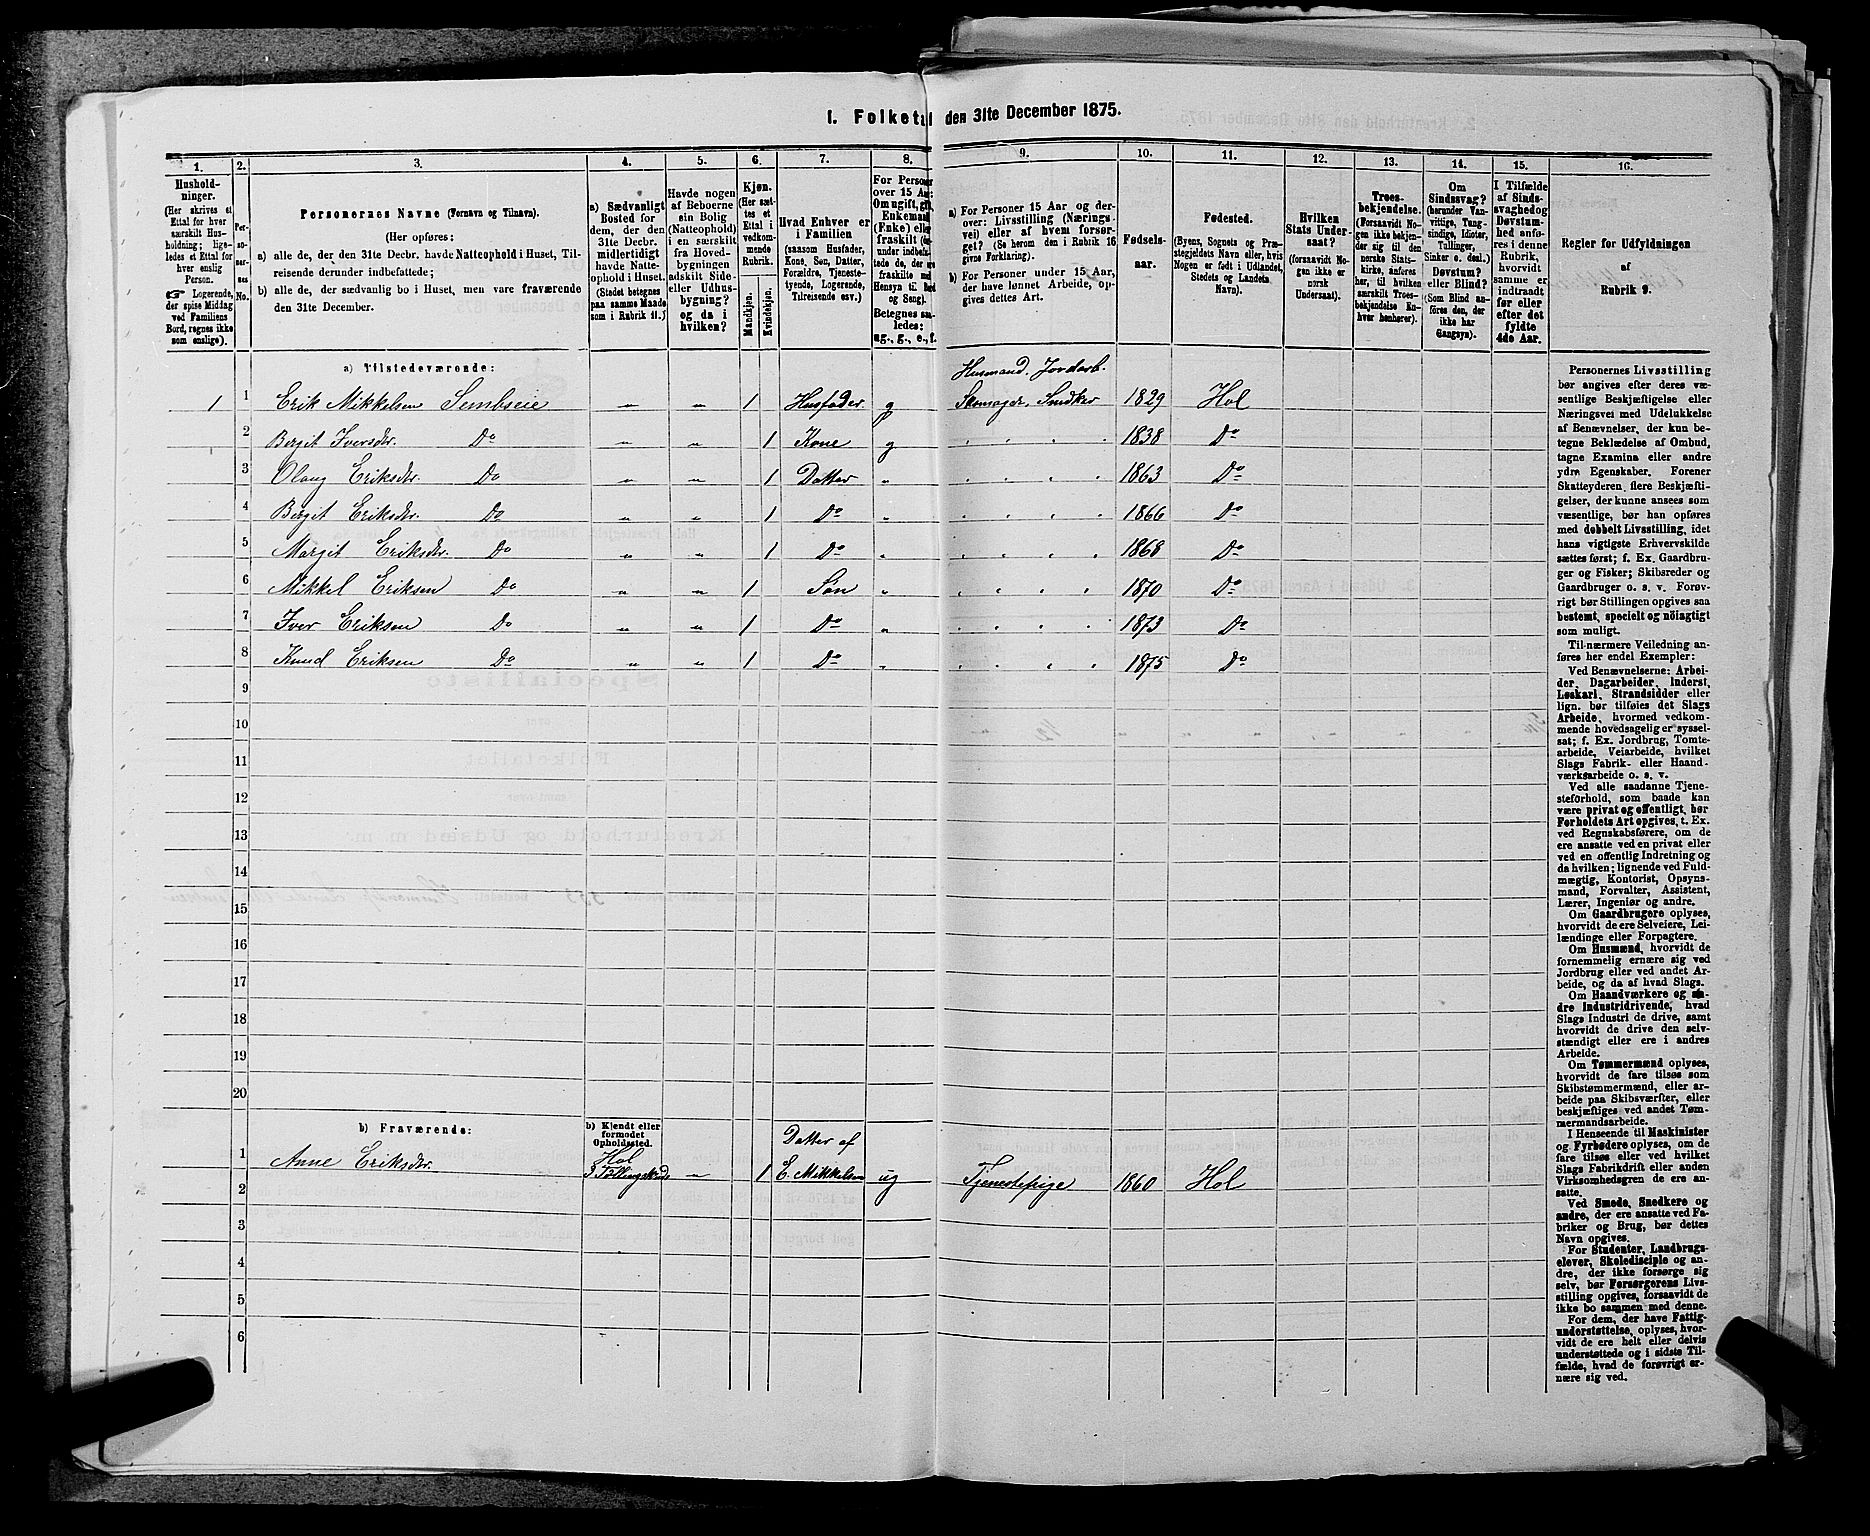 1. Folketal den 31te December 1875.
1. 2. 3. 4. 5. 6. 7. 8. 9. 10. 11. 12. 13. 14. 15. 16.
Hushold-
ninger.
(Her skrives et
Ettal for hver
særskilt Hus-
holdning; lige-
ledes et Ettal for
hver enslig
Person.
☞ Logerende,
der spise Middag
ved Familiens
Bord, regnes ikke
som enslige).
Per-
so-
ner-
nes
No.
Personernes Navne (Fornavn og Tilnavn).
(Her opføres:
a) alle de, der den 31te Decbr. havde Natteophold i Huset, Til-
reisende derunder indbefattede;
b) alle de, der sædvanlig bo i Huset, men vare fraværende
den 31te December.
a) Sædvanligt
Bosted for
dem, der den
31te Decbr.
midlertidigt
havde Natte-
ophold i Huset.
(Stedet betegnes
paa samme Maade
som i Rubrik 11.)
Havde nogen
af Beboerne
sin Bolig
(Natteophold)
i en særskilt
fra Hoved-
bygningen
adskilt Side-
eller Udhus-
bygning?
og da i
hvilken?
Kjøn.
(Her sæt-
tes et
Ettal i
vedkom-
mende
Rubrik.
Mandkjøn.
Kvindekjøn.
Hvad Enhver er
i Familien
(saasom Husfader,
Kone, Søn, Datter,
Forældre, Tjeneste-
tyende, Logerende,
Tilreisende osv.)
For Personer
over 15 Aar:
Om ugift, gift,
Enkemand
(Enke) eller
fraskilt
Betegnes saa-
ledes:
ug., g., e., f.
a) For Personer 15 Aar og der-
over: Livsstilling (Nærings-
vei) eller af hvem forsør-
get? (Se herom den i Rubrik 16
givne Forklaring).
b) For Personer under 15 Aar,
der have lønnet Arbeide, op-
gives dettes Art.
Fødsels-
aar.
Fødested.
(Byens, Sognets og Præ-
stegjeldets Navn eller, hvis
Nogen er født i Udlandet,
Stedets og Landets
Navn).
Hvilken
Stats Under-
saat?
(forsaavidt No-
gen ikke er
norsk
Undersaat).
Troes-
bekjendelse.
(Forsaavidt No-
gen ikke bekjen-
der sig til den
norske Stats-
kirke, anføres
her, til hvilken
særskilt Troes-
bekjendelse En-
hver henhører).
Om
Sindssvag?
(herunder Van-
vittige, Tung-
sindige, Idioter,
Tullinger,
Sinker o. desl.)
Døvstum?
eller Blind?
(Som Blind an-
føres den, der
ikke har
Gangsyn).
I Tilfælde
af Sinds-
svaghed og
Døvstum-
hed anføres
i denne
Rubrik,
hvorvidt
samme er
indtraadt
før eller
efter det
fyldte
4de Aar.
Regler for Udfyldningen
af
Rubrik 9.
a) Tilstedeværende:
Husmand. Jordarb.
1 1 Erik Mikkelsen Sembseie „ „ 1 Husfader g Skomager, Snedker 1829 Hol
2 Bergit Iversdtr. Do „ „ 1 Kone g „ „ „ „ 1838 Do
3 Olaug Eriksdtr. Do „ „ 1 Datter „ „ „ „ „ 1863 Do
4 Bergit Eriksdtr. Do „ „ 1 Do „ „ „ „ „ 1866 Do
5 Margit Eriksdtr. Do „ „ 1 Do „ „ „ „ „ 1868 Do
6 Mikkel Eriksen Do „ „ 1 Søn „ „ „ „ „ 1870 Do
7 Iver Eriksen Do „ „ 1 Do „ „ „ „ „ 1873 Do
8 Knud Eriksen Do „ „ 1 Do „ „ „ „ „ 1875 Do
9
10
11
12
13
14
15
16
17
18
19
20
b) Fraværende:
b) Kjendt eller
formodet
Opholdssted.
Hol Datter af
1 Anne Eriksdtr. 3 Tællingskreds „ 1 E. Mikkelsen ug Tjenestepige 1860 Hol
2
3
4
5
6
Personernes Livsstilling
bør angives efter deres væ-
sentlige Beskjæftigelse eller
Næringsvei med Udelukkelse
af Benævnelser, der kun be-
tegne Beklædelse af Ombud,
tagne Examina eller andre
ydre Egenskaber. Forener
Skatteyderen flere Beskjæfti-
gelser, der kunne ansees som
væsentlige, bør han opføres
med dobbelt Livsstilling, idet
hans vigtigste Erhvervskilde
sættes først; f. Ex. Gaardbru-
ger og Fisker; Skibsreder og
Gaardbruger o. s. v. Forøv-
rigt bør Stillingen opgives saa
bestemt, specielt og nøiagtigt
som muligt.
Til nærmere Veiledning an-
føres her endel Exempler:
Ved Benævnelserne: Arbei-
der, Dagarbeider, Inderst,
Løskarl, Strandsidder eller
lign. bør tilføies det Slags
Arbeide, hvormed vedkom-
mende hovedsagelig er syssel-
sat; f. Ex. Jordbrug, Tomte-
arbeide, Veiarbeide, hvilket
Slags Fabrik- eller Haand-
værksarbeide o. s. v.
Ved alle saadanne Tjene-
steforhold, som baade kan
være privat og offentligt, bør
Forholdets Art opgives, t. Ex.
ved Regnskabsførere, om de
ere ansatte ved en privat eller
ved en offentlig Indretning og
da hvilken; lignende ved Fuld-
mægtig, Kontorist, Opsyns-
mand, Forvalter, Assistent,
Lærer, Ingeniør og andre.
Om Gaardbrugere oplyses,
hvorvidt de ere Selveiere, Lei-
lændinge eller Forpagtere.
Om Husmænd, hvorvidt de
fornemmelig ernære sig ved
Jordbrug eller ved andet Ar-
beide, og da af hvad Slags.
Om Haandværkere og an-
dre Industridrivende, hvad
Slags Industri de drive, samt
hvorvidt de drive den selv-
stændigt eller ere i andres
Arbeide.
Om Tømmermænd oplyses,
hvorvidt de fare tilsøs som
Skibstømmermænd, eller ar-
beide paa Skibsværfter, eller
beskjæftiges ved andet Tøm-
mermandsarbeide.
I Henseende til Maskinister
og Fyrbødere oplyses, om de
fare tilsøs eller ved hvilket
Slags Fabrikdrift eller anden
Virksomhedsgren de ere an-
satte.
Ved Smede, Snedkere og
andre, der ere ansatte ved Fa-
briker og Brug, bør dettes
Navn opgives.
For Studenter, Landbrugs-
elever, Skoledisciple og an-
dre, der ikke forsørge sig
selv, bør Forsørgerens Livs-
stilling opgives, forsaavidt de
ikke bo sammen med denne.
For dem, der have Fattig-
understøttelse, oplyses, hvor-
vidt de ere helt eller delvis
understøttede og i sidste Til-
fælde, hvad de forøvrigt er-
nære sig ved.